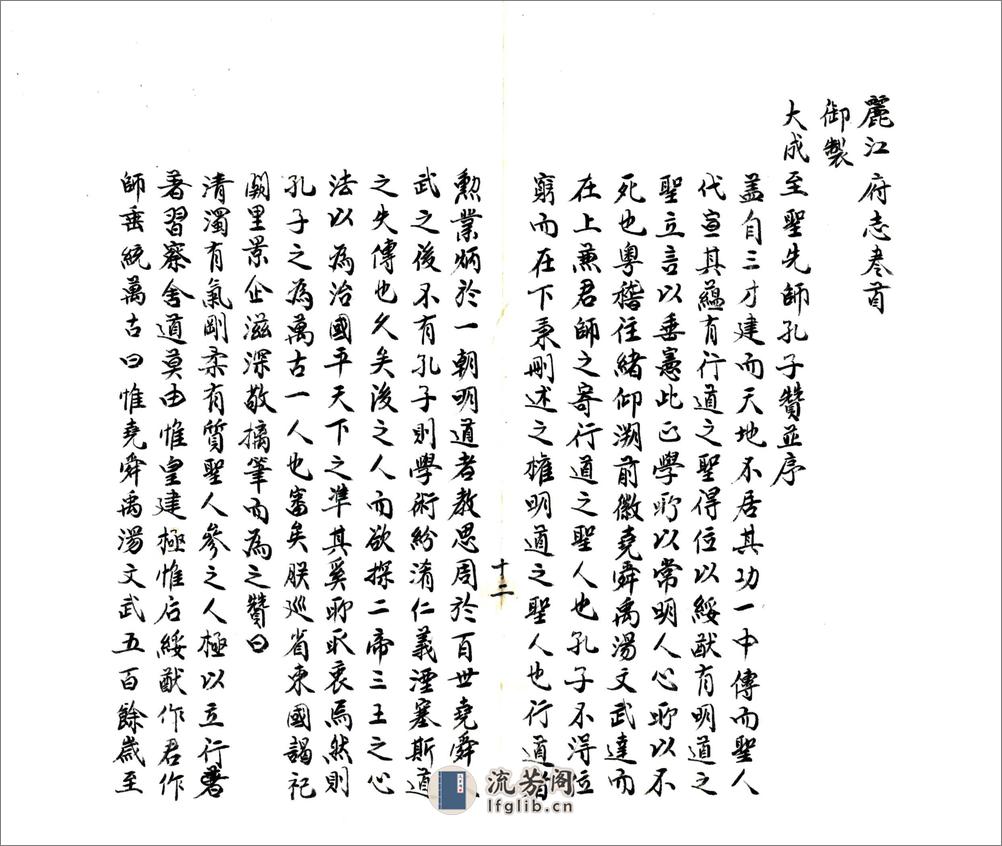 麗江府志卷首
御製
大成至聖先師孔子贊並序
盖自三才建而天地不居其功一中傳而聖人
代宣其蘊有行道之聖得位以綏猷有明道之
聖立言以垂憲此正學所以常明人心所以不
死也粵稽往緒仰溯前徽堯舜禹湯文武達而
在上兼君師之寄行道之聖人也孔子不得位
窮而在下秉刪述之權明道之聖人也行道者
十二
勲業炳於一朝明道者教思周於百世堯舜
武之後不有孔子則學術紛淆仁義湮塞斯道
之失傳也久矣後之人而欲探二帝三王之心
法以為治國平天下之準其奚所取衷焉然則
孔子之為萬古一人也審矣朕巡省東國謁祀
闕里景企滋深敬摛筆而為之贊曰
清濁有氣剛柔有質聖人參之人極以立行著
著習察舍道莫由惟皇建極惟后綏猷作君作
師垂統萬古曰惟堯舜禹湯文武五百餘歲至
流芳阁
lfglib.cn